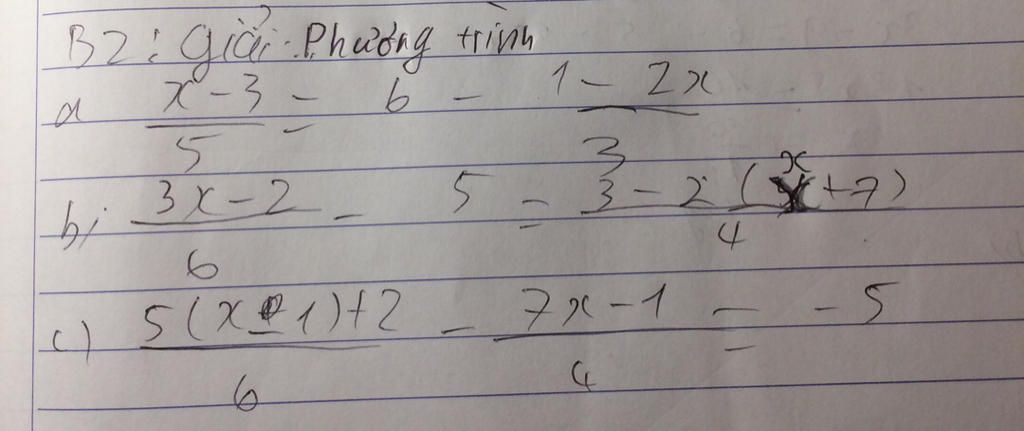 B2: Giải Phương trình
a x-3 = 6 - 1-2x
5 3
b) 3x-2 - 5 = 3-2(x+7)
6 4
c) 5(x-1)+2 - 7x-1 = -5
6 4